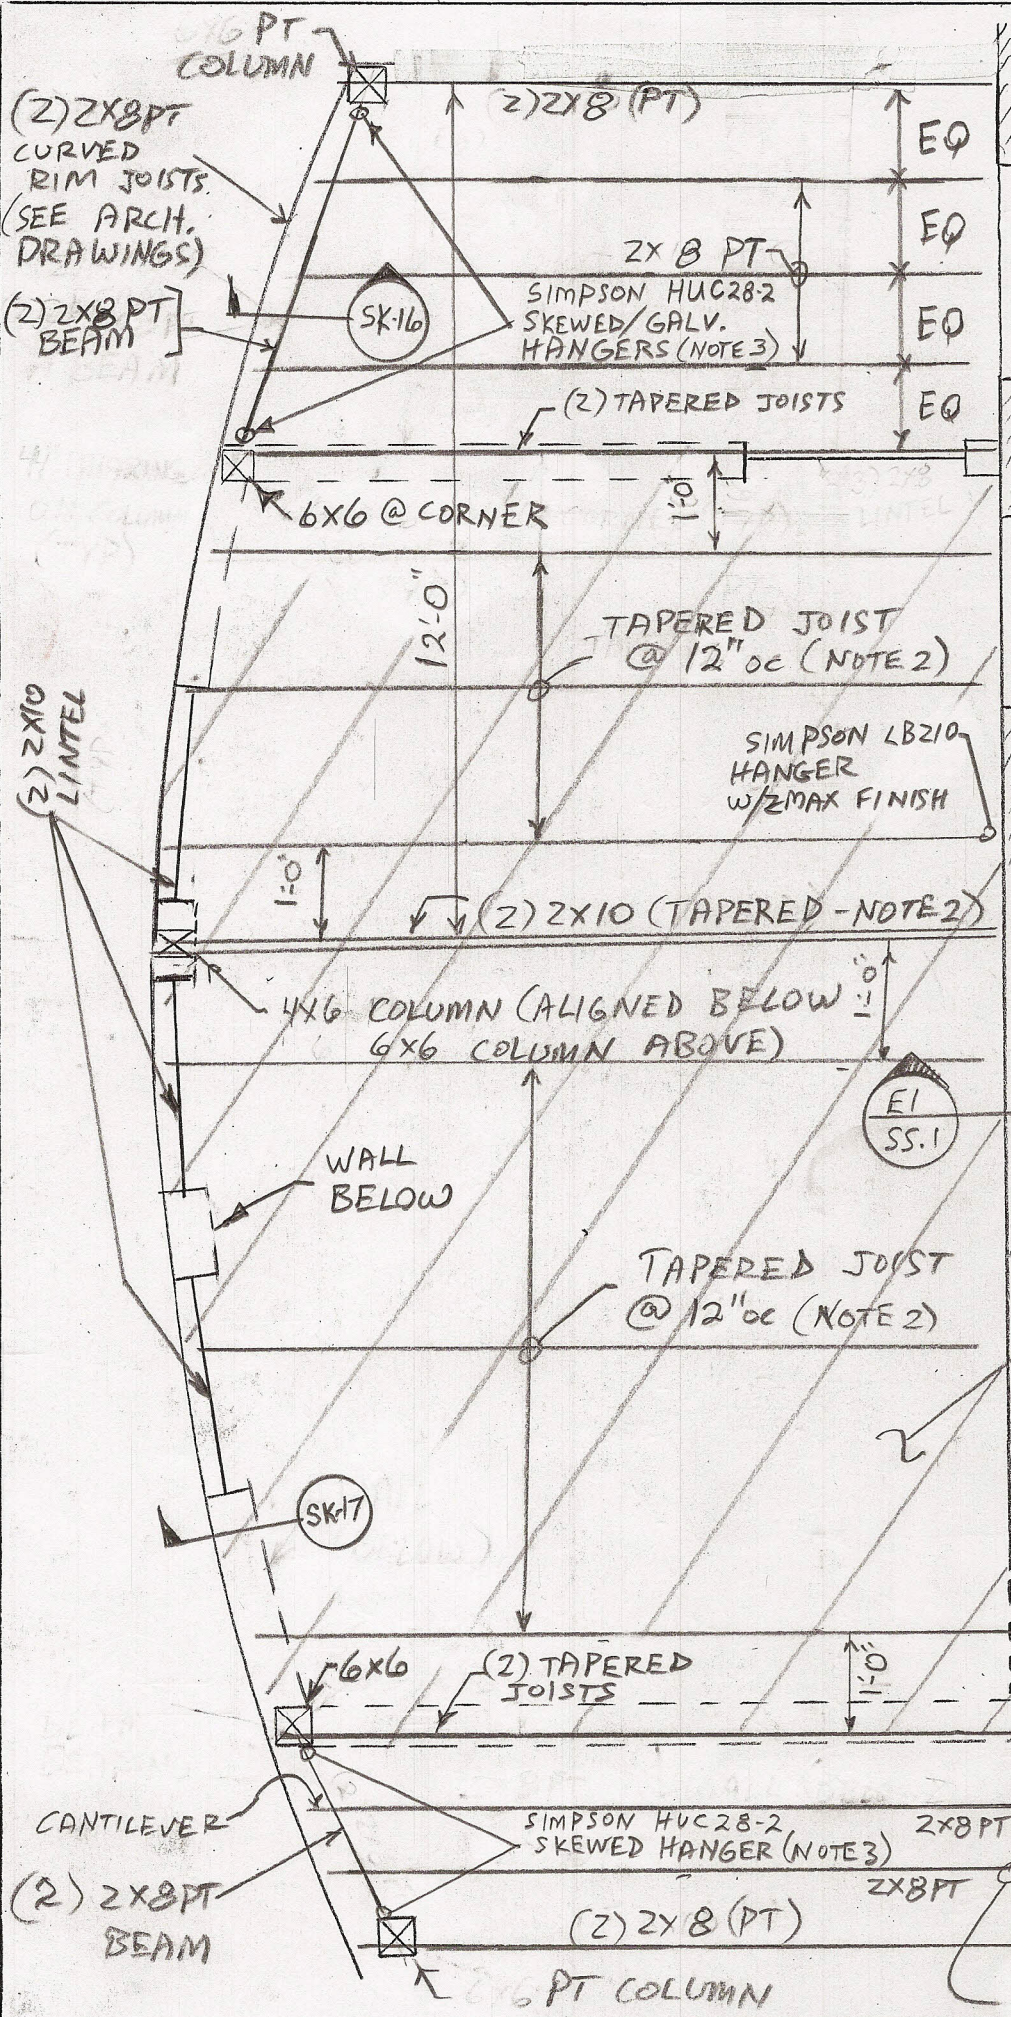 PT
COLUMN
(2) 2X8PT
CURVED
RIM JOISTS.
(SEE ARCH.
DRAWINGS)
(2) 2X8 PT
BEAM
SK-16
2) 2X8 (PT)
EQ
EQ
EQ
EQ
2X 8 PT
SIMPSON HUC28-2
SKEWED/GALV.
HANGERS (NOTE 3)
(2) TAPERED JOISTS
6X6 @ CORNER
1'-0"
12'-0"
TAPERED JOIST
@ 12" OC (NOTE 2)
(2) 2X10
LINTEL
SIMPSON LB210
HANGER
W/ZMAX FINISH
1'-0"
(2) 2X10 (TAPERED - NOTE 2)
1'-0"
4X6 COLUMN (ALIGNED BELOW
6X6 COLUMN ABOVE)
E1
SS.1
WALL
BELOW
TAPERED JOIST
@ 12" OC (NOTE 2)
SK-17
6X6
(2) TAPERED
JOISTS
1'-0"
CANTILEVER
SIMPSON HUC28-2
SKEWED HANGER (NOTE 3)
2X8PT
2X8PT
(2) 2X8PT
BEAM
(2) 2X8 (PT)
PT COLUMN